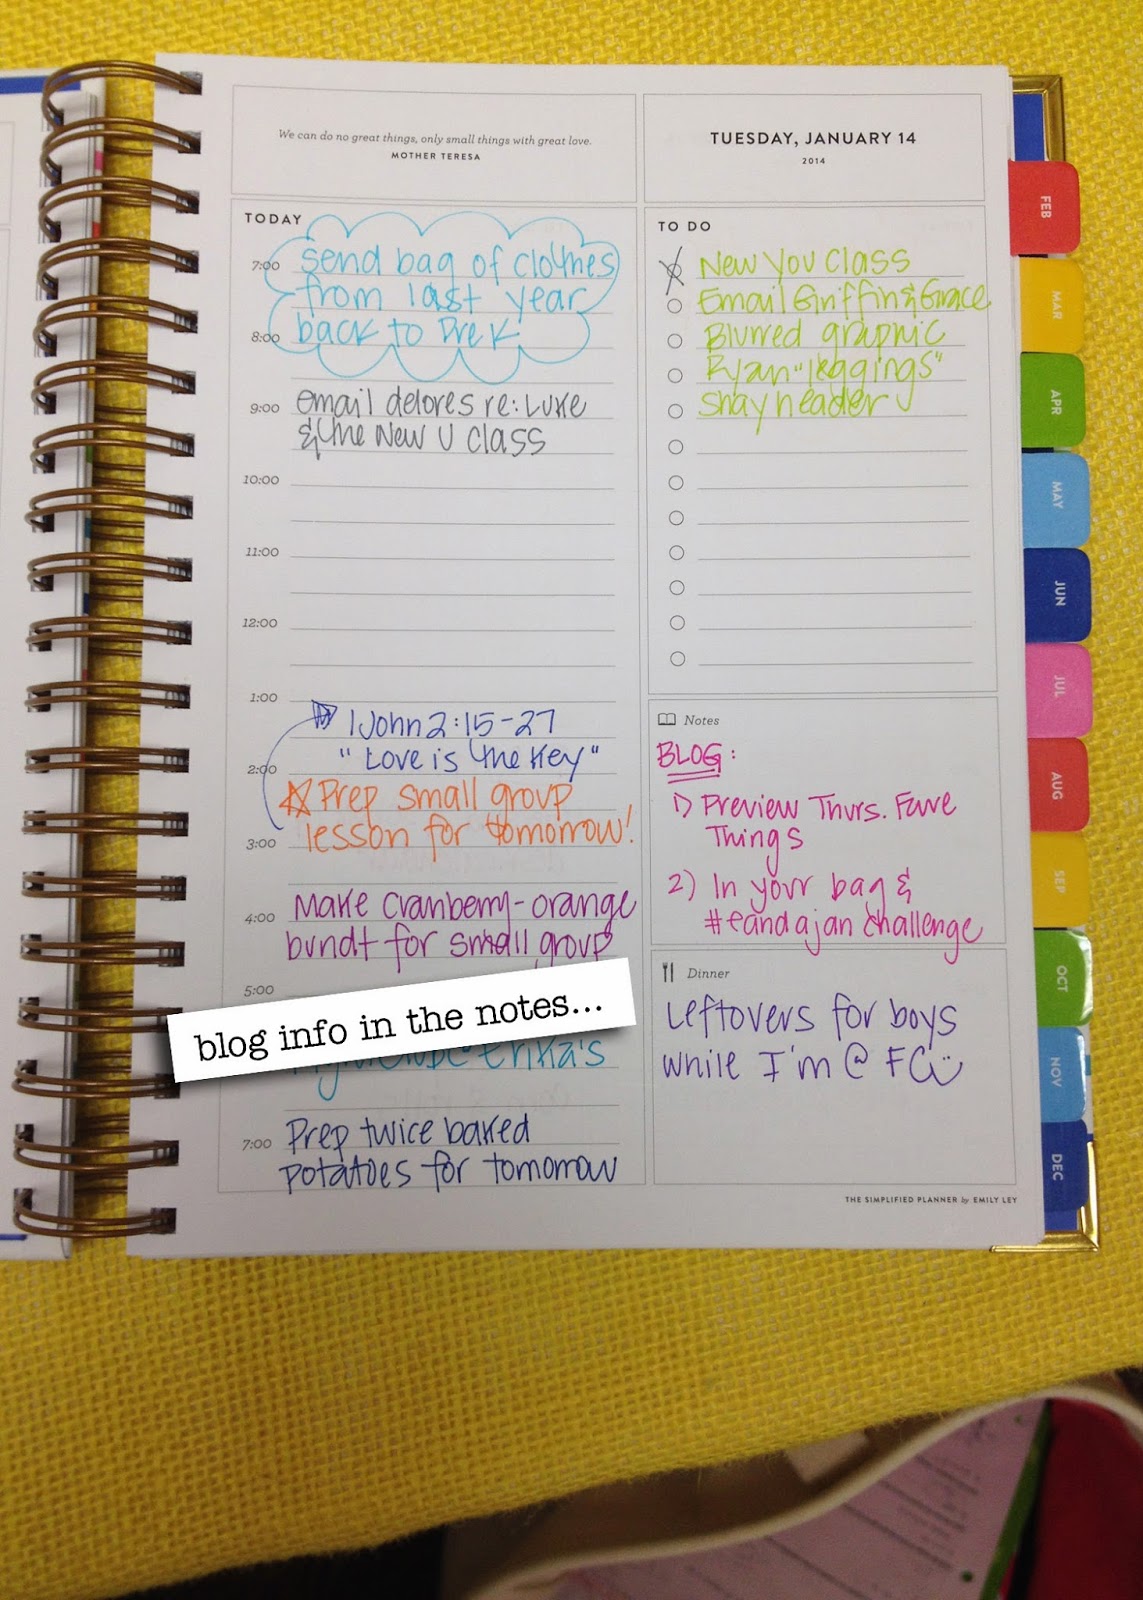 We can do no great things, only small things with great love.
MOTHER TERESA
TUESDAY, JANUARY 14
2014
TODAY
7:00 send bag of clothes
from last year
8:00 back to Pre K.
9:00 email delores re: Luke
& the New U class
10:00
11:00
12:00
1:00
1 John 2:15-27
2:00 "Love is the Key"
Prep small group
3:00 lesson for tomorrow!
4:00 Make cranberry-orange
bundt for small group
5:00
blog info in the notes...
@ Erika's
7:00 Prep twice baked
potatoes for tomorrow
TO DO
New You Class
Email Griffin & Grace
Blurred graphic
Ryan "leggings"
Shay header
Notes
BLOG:
1) Preview Thurs. Fave
Things
2) In your bag &
#eandajan challenge
Dinner
Leftovers for boys
while I'm @ FC
THE SIMPLIFIED PLANNER by EMILY LEY
FEB
MAR
APR
MAY
JUN
JUL
AUG
SEP
OCT
NOV
DEC